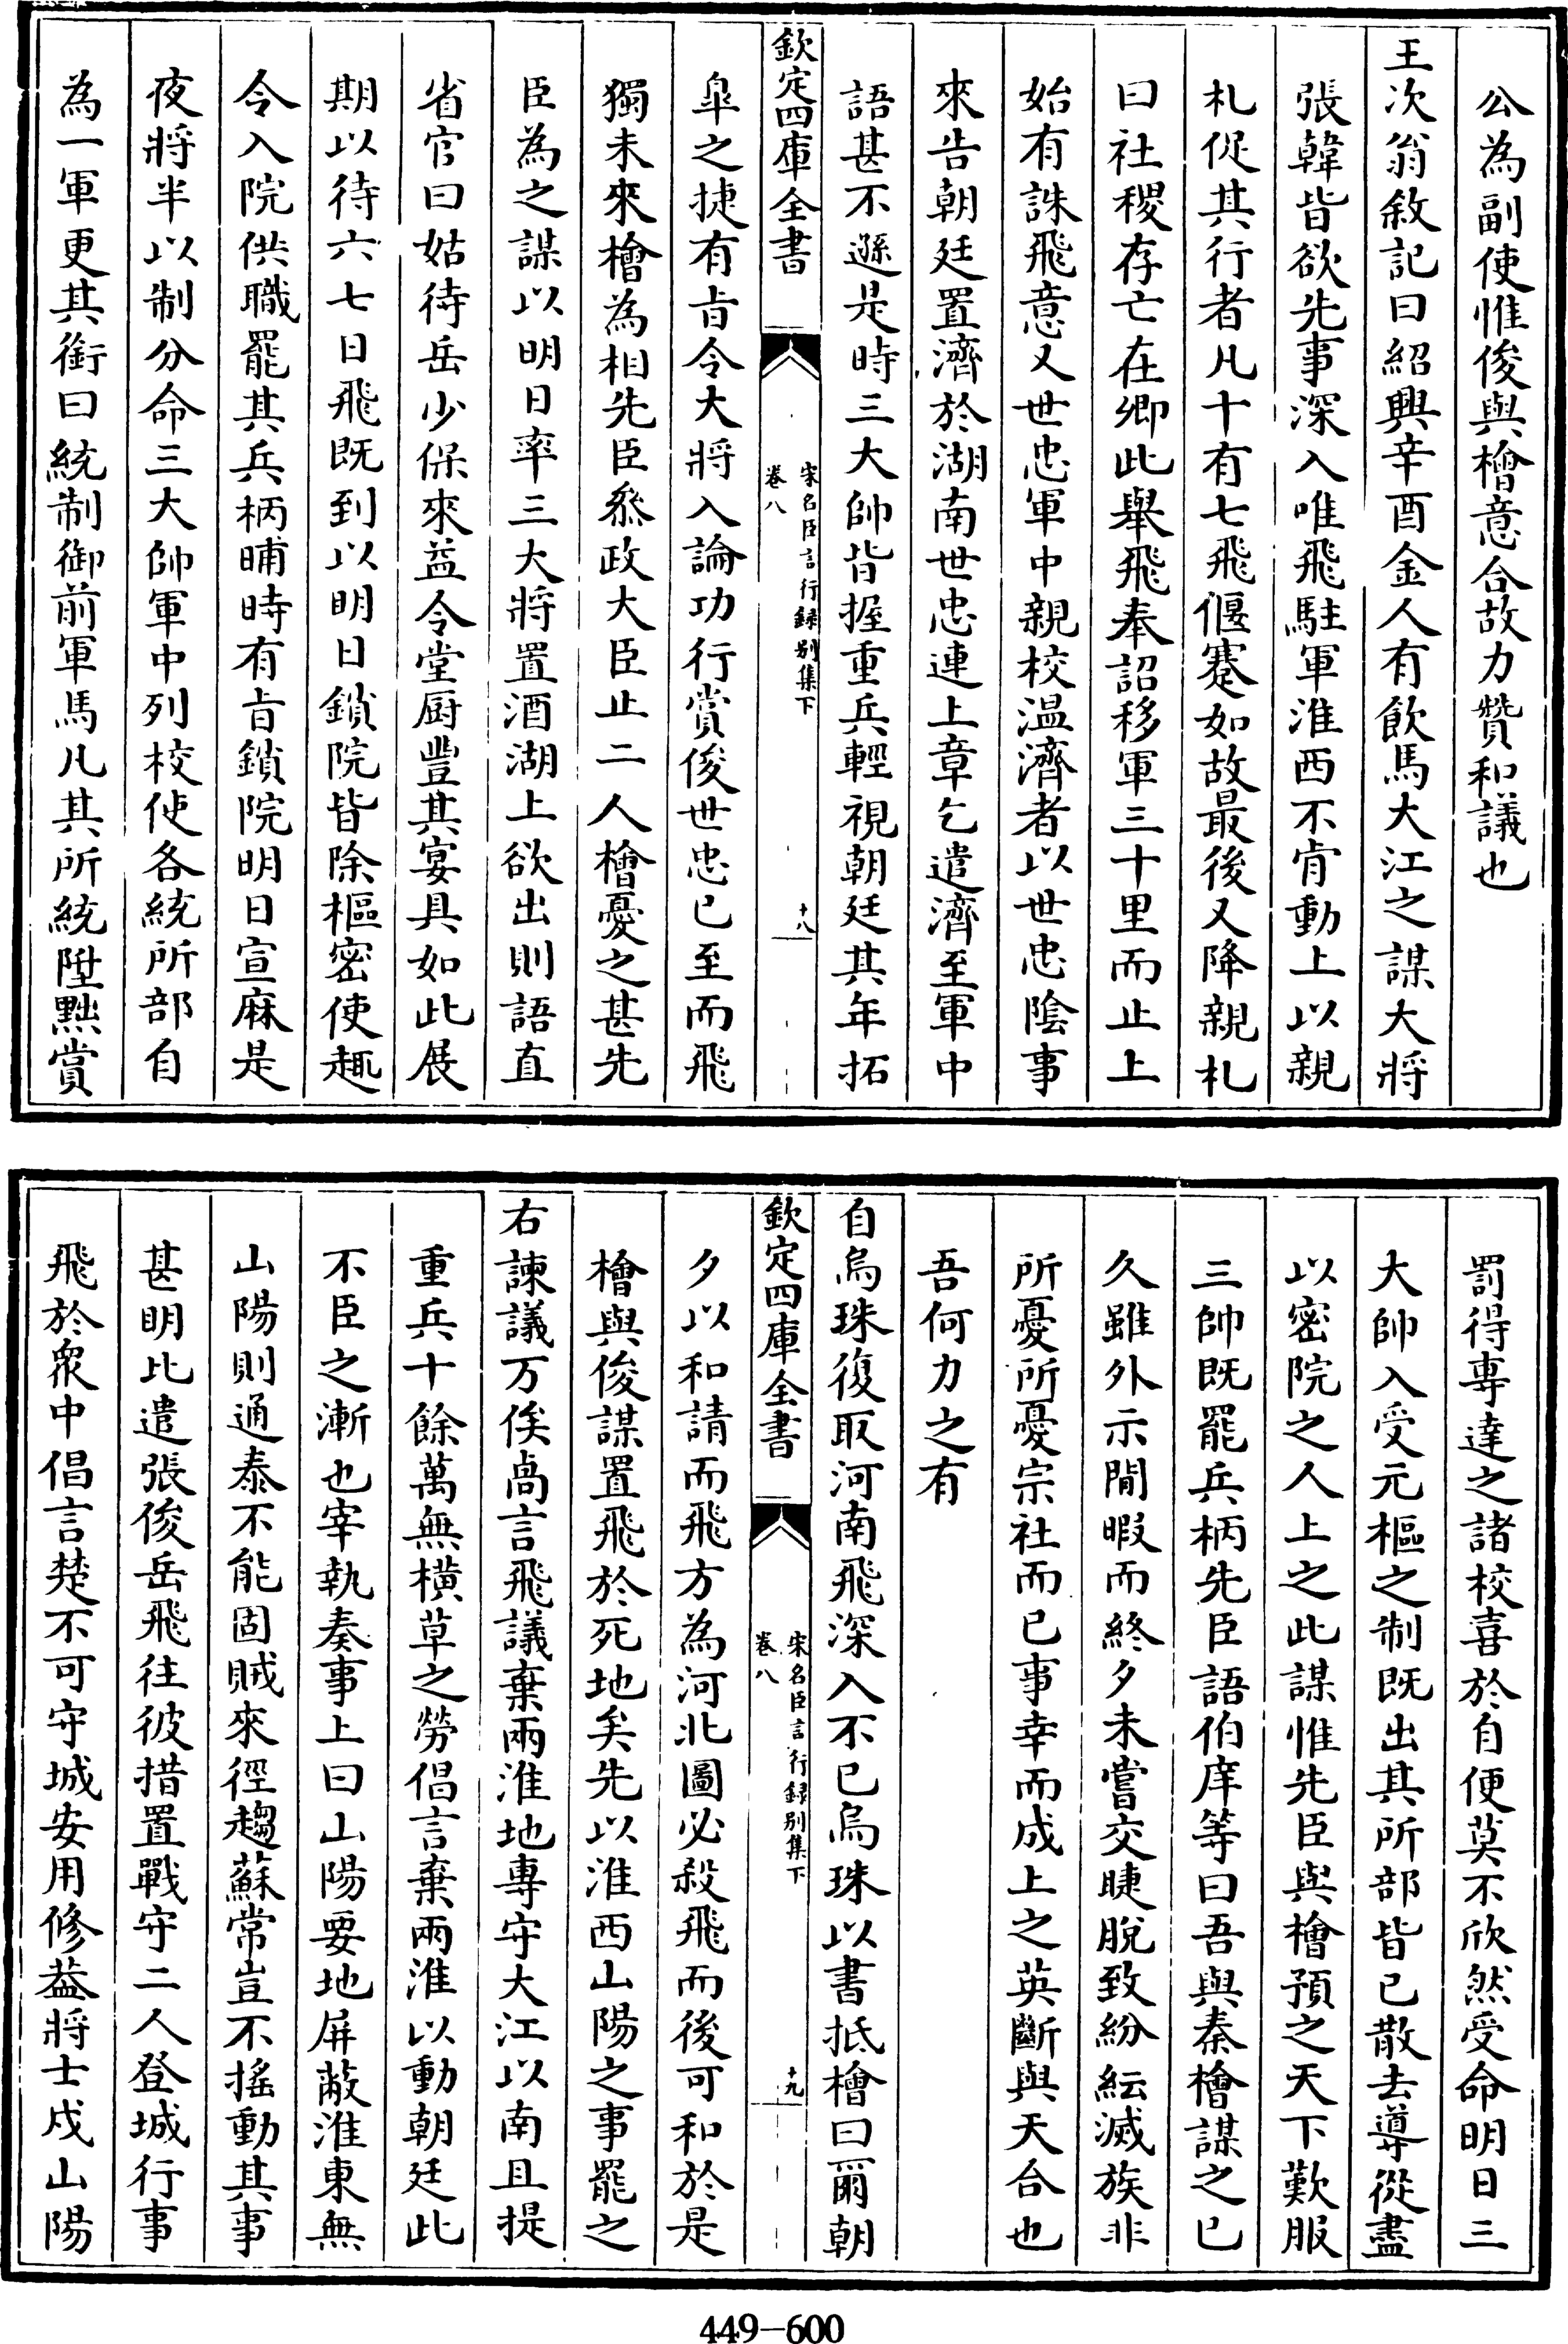 公為副使惟俊與檜意合故力贊和議也
王次翁敘記曰紹興辛酉金人有飲馬大江之謀大將
張韓皆欲先事深入唯飛駐軍淮西不肯動上以親
札促其行者凡十有七飛偃蹇如故最後又降親札
曰社稷存亡在卿此舉飛奉詔移軍三十里而止上
始有誅飛意又世忠軍中親校温濟者以世忠陰事
來告朝廷置濟於湖南世忠連上章乞遣濟至軍中
語甚不遜是時三大帥皆握重兵輕視朝廷其年拓
欽定四庫全書
宋名臣言行録别集下
卷八
十八
臯之捷有㫖令大將入論功行賞俊世忠已至而飛
獨未來檜為相先臣叅政大臣止二人檜憂之甚先
臣為之謀以明日率三大將置酒湖上欲出則語直
省官曰姑待岳少保來益令堂厨豐其宴具如此展
期以待六七日飛既到以明日鎖院皆除樞密使趣
令入院供職罷其兵柄晡時有㫖鎖院明日宣麻是
夜將半以制分命三大帥軍中列校使各統所部自
為一軍更其銜曰統制御前軍馬凡其所統陞黜賞
罰得專達之諸校喜於自便莫不欣然受命明日三
大帥入受元樞之制既出其所部皆已散去導從盡
以密院之人上之此謀惟先臣與檜預之天下歎服
三帥既罷兵柄先臣語伯庠等曰吾與秦檜謀之已
久雖外示閒暇而終夕未嘗交睫脫致紛紜滅族非
所憂所憂宗社而已事幸而成上之英斷與天合也
吾何力之有
自烏珠復取河南飛深入不已烏珠以書抵檜曰爾朝
欽定四庫全書
宋名臣言行録别集下
卷八
十九
夕以和請而飛方為河北圖必殺飛而後可和於是
檜與俊謀置飛於死地矣先以淮西山陽之事罷之
右諫議万俟卨言飛議棄兩淮地專守大江以南且提
重兵十餘萬無橫草之勞倡言棄兩淮以動朝廷此
不臣之漸也宰執奏事上曰山陽要地屏蔽淮東無
山陽則通泰不能固賊來徑趨蘇常豈不搖動其事
甚明比遣張俊岳飛往彼措置戰守二人登城行事
飛於衆中倡言楚不可守城安用修葢將士戍山陽
449-600